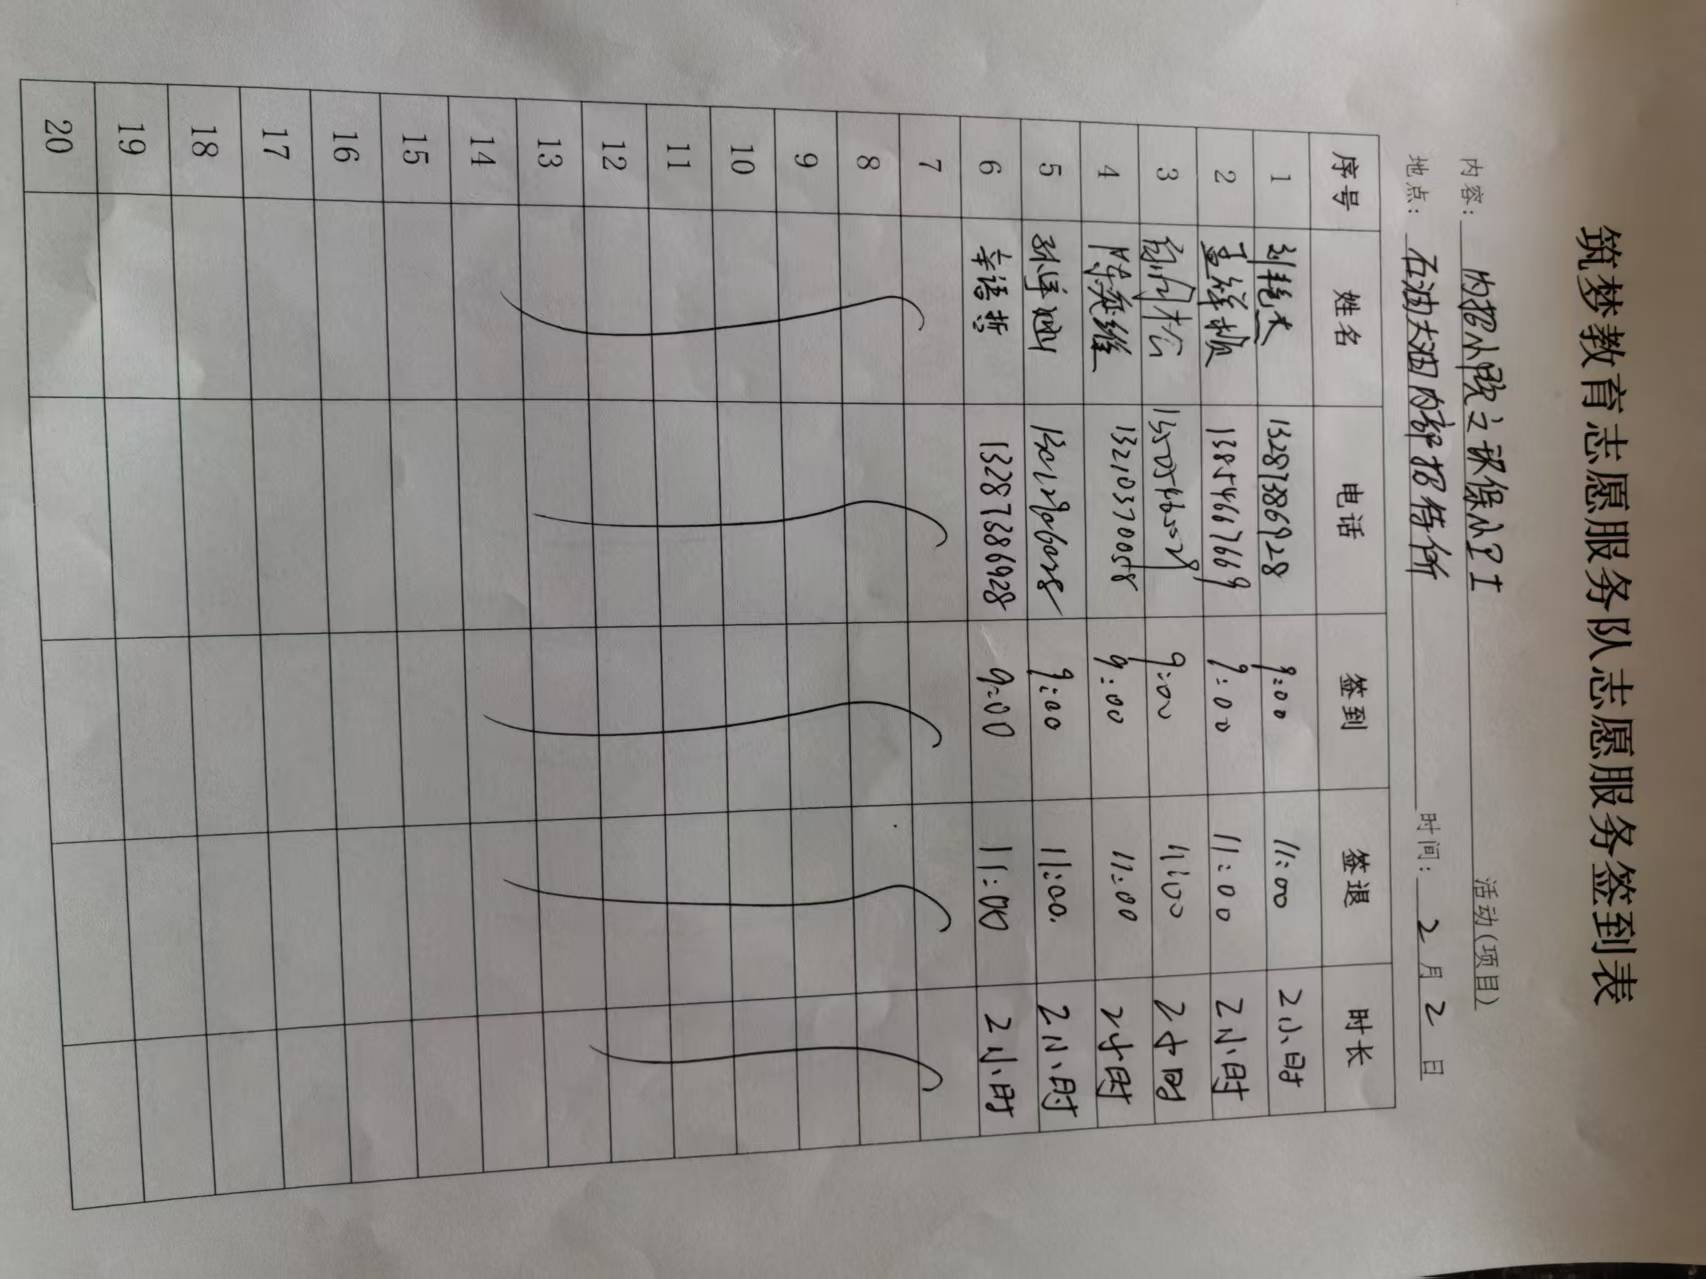 筑梦教育志愿服务队志愿服务签到表
内容: 内招小院之环保小卫士 活动(项目)
地点: 石油大油内部招待所 时间: 2月2日
序号 姓名 电话 签到 签退 时长
1 13287386928 9:00 11:00 2小时
2 13854667669 9:00 11:00 2小时
3 9:00 11:00 2小时
4 陈奕维 13210370058 9:00 11:00 2小时
5 9:00 11:00. 2小时
6 李语哲 13287386928 9:00 11:00 2小时
7
8
9
10
11
12
13
14
15
16
17
18
19
20